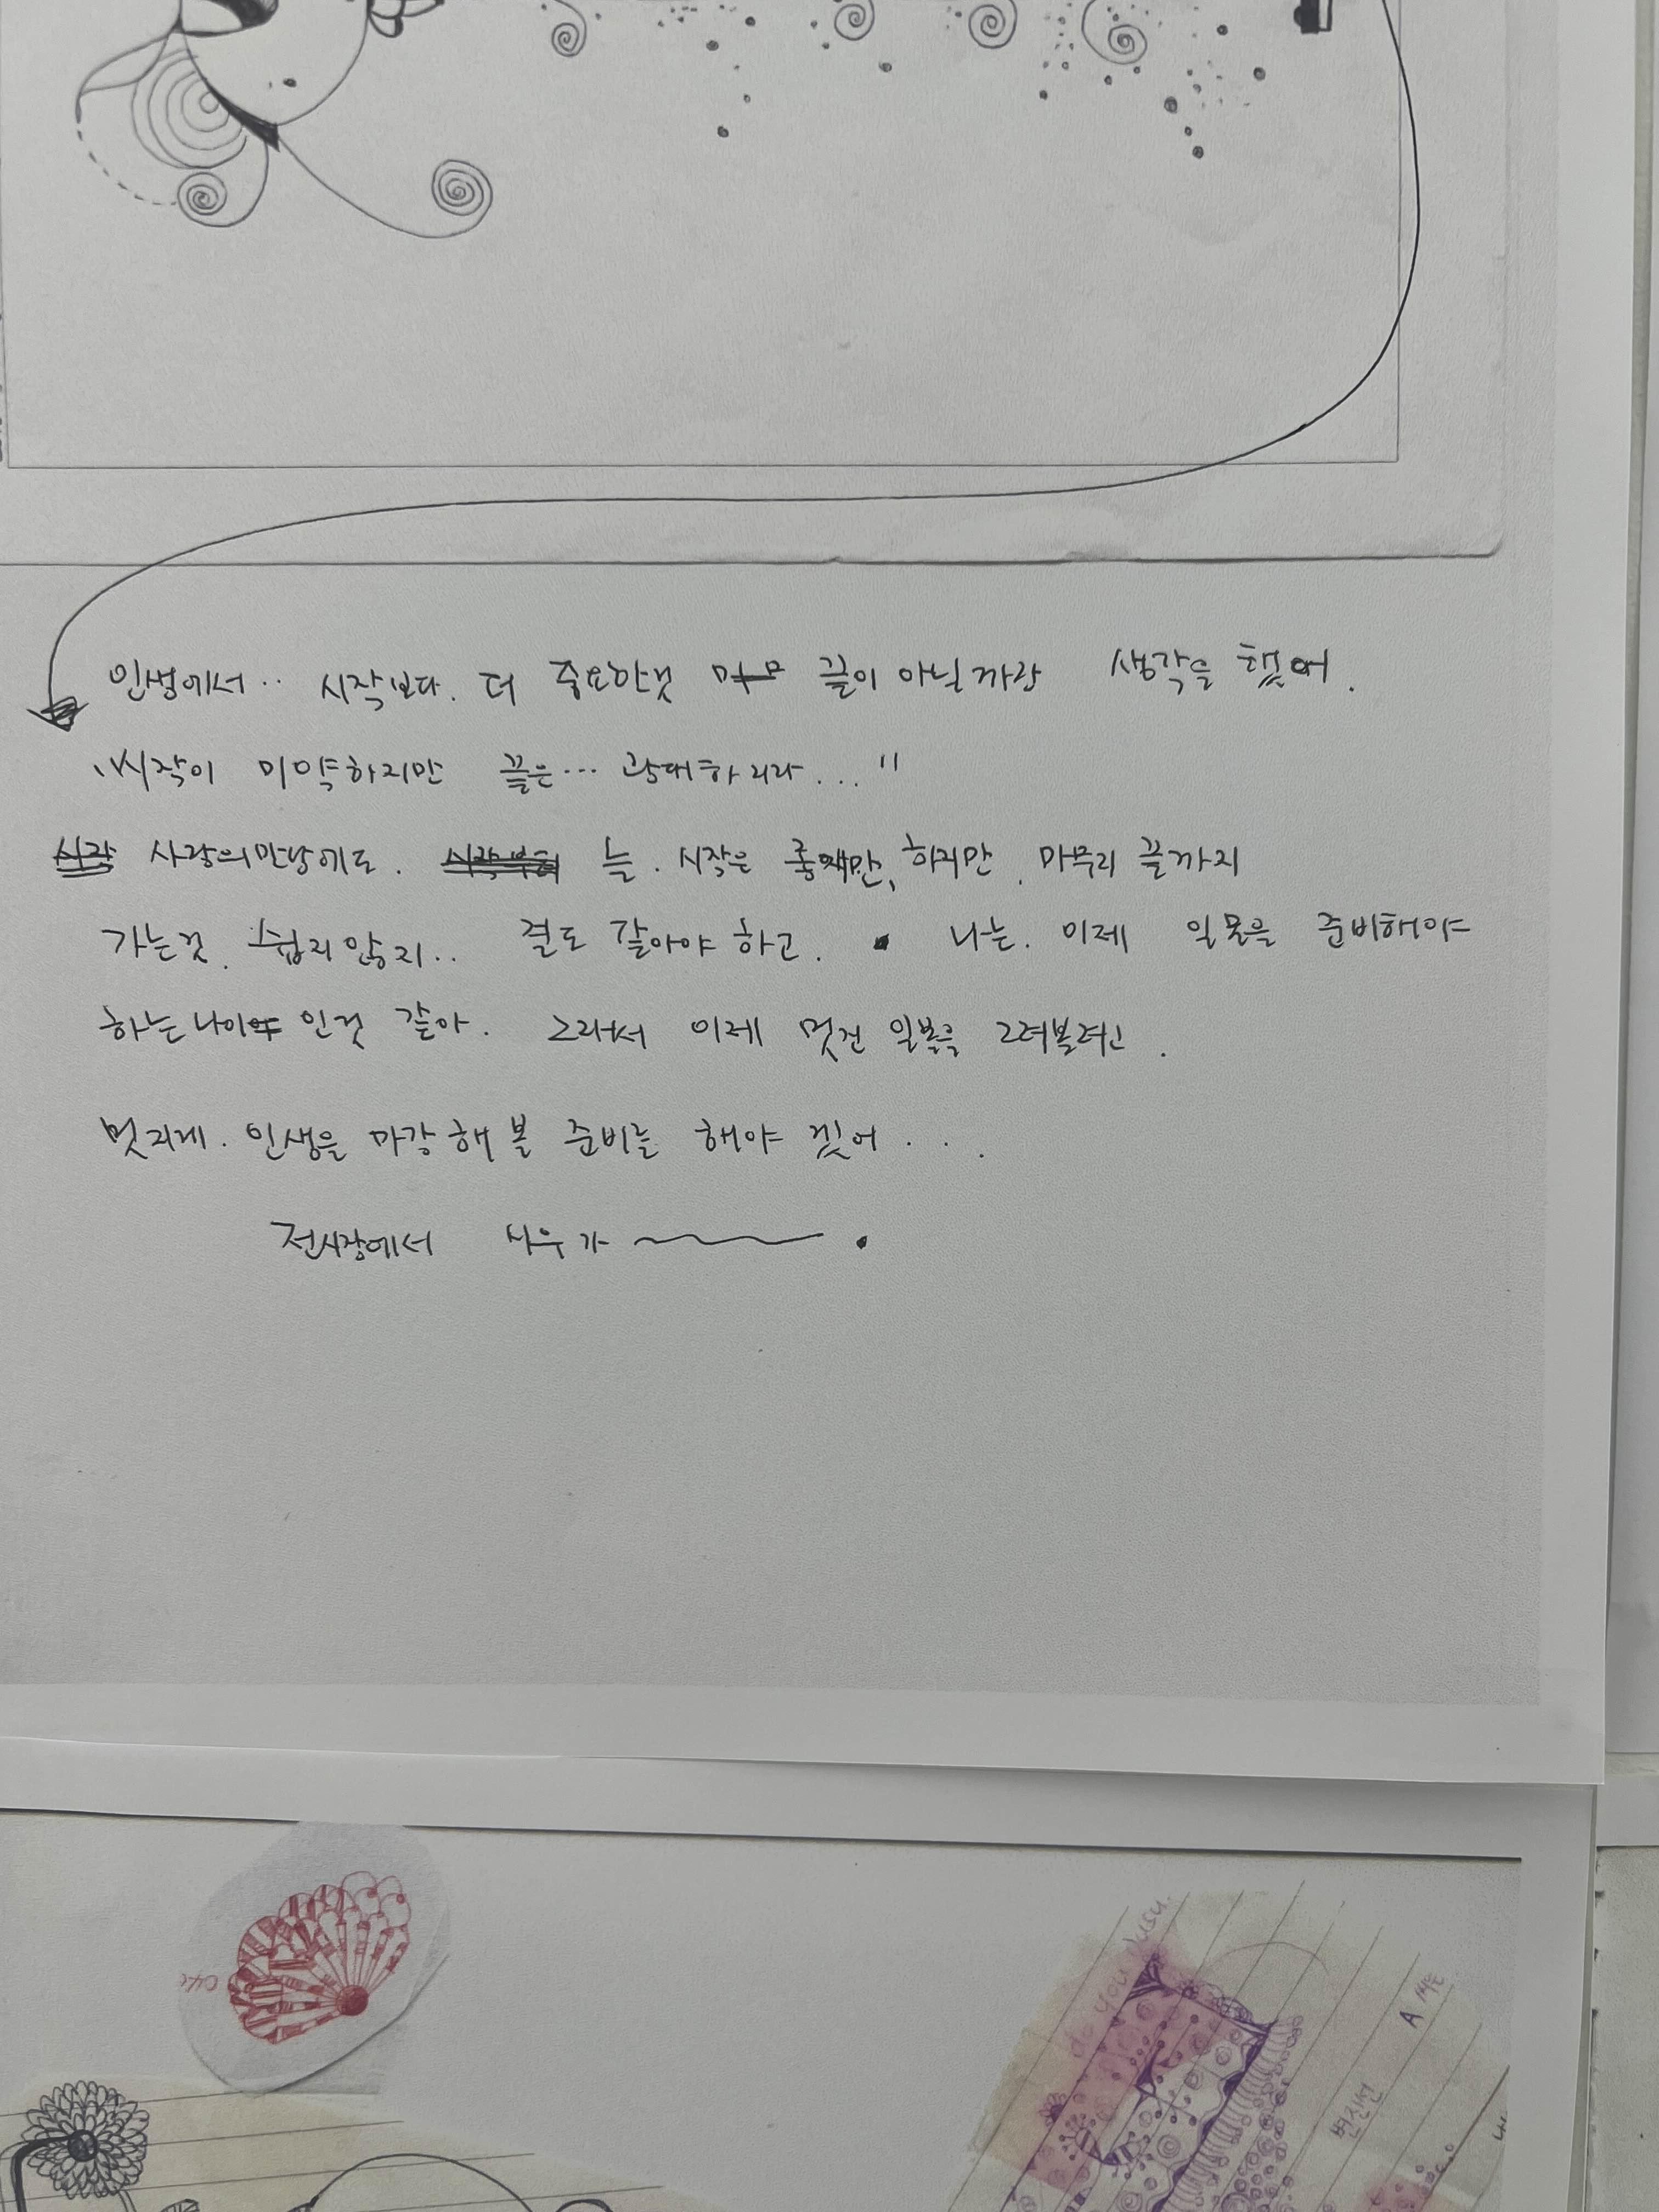 인생에서.. 시작보다. 더 중요한것 끝이 아닐까란 생각을 했어.
"시작이 미약하지만 끝은... 광대하리라..."
사랑의만남에도. 늘. 시작은 좋지만, 하지만. 마무리 끝까지
가는것. 쉽지않지.. 결도 같아야 하고. 나는. 이제 일몰을 준비해야
하는나이 인것 같아. 그래서 이제 멋진 일몰을 그려볼려고.
멋지게. 인생을 마감해 볼 준비를 해야 겠어...
전시장에서 사우가
do you
A
변신선